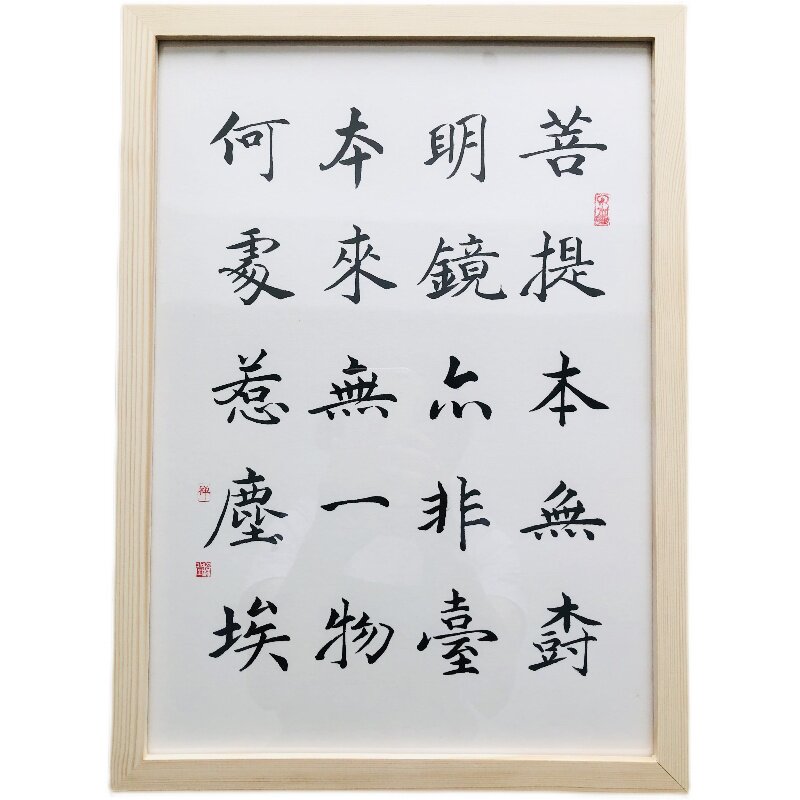 菩提本無樹
明鏡亦非臺
本來無一物
何處惹塵埃
禅一